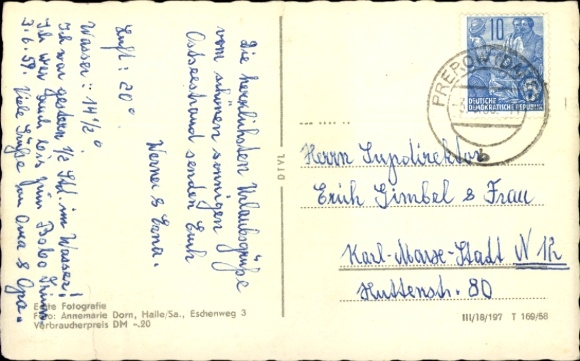 Die herzlichsten Urlaubsgrüße
vom schönen sonnigen
Ostseestrand senden Euch
Werner & Erna.
Luft: 20°
Wasser: 14 ½°
Ich war gestern ½ Std. im Wasser!
Ich war auch bis zum
3.6.59. Viele Grüße von Oma & Opa.
Echte Fotografie
Foto: Annemarie Dorn, Halle/Sa., Eschenweg 3
Verbraucherpreis DM -.20
10
DEUTSCHE
DEMOKRATISCHE REPUBLIK
PREROW (DARß)
Herrn Supodirektor
Erich Gimbel & Frau
Karl-Marx-Stadt N 12
Huttenstr. 80
III/18/197 T 169/58